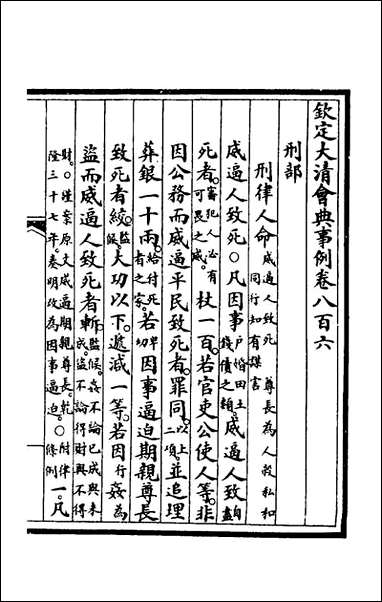 欽定大清會典事例卷八百六
刑部
刑律人命 威逼人致死 尊長為人殺私和 同行知有謀害
威逼人致死○凡因事戶婚田土錢債之類威逼人致自盡
死者審犯人必有可畏之威杖一百若官吏公使人等非
因公務而威逼平民致死者罪同以上二項並追埋
葬銀一十兩給付死者之家若卑幼因事逼迫期親尊長
致死者絞監候大功以下遞減一等若因行姦為
盜而威逼人致死者斬監候姦不論已成與未成盜不論得財與不得
財○謹案原文威逼期親尊長乾隆三十七年奏明改為因事逼迫○附律條例一凡